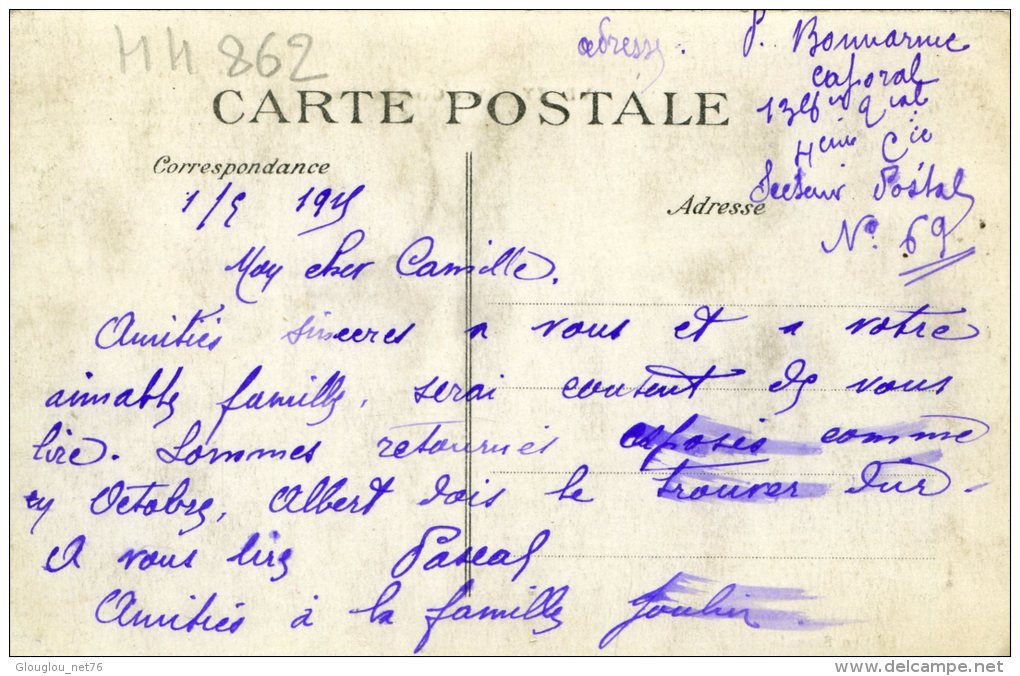 HH 862
adresse. P. Bonnarme
caporal
CARTE POSTALE
4eme Cie
Correspondance
Secteur Postal
1/5 1915
Adresse
No. 69
Mon cher Camille.
Amitiés sincères a vous et a votre
aimable famille, serai content de vous
lire. Sommes retournés exposés comme
en Octobre, Albert dois le trouver dur.
A vous lire Pascal
Amitiés à la famille
Glouglou_net76
delcampe.net